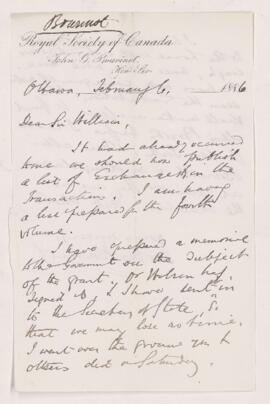 Bourinot
Royal Society of Canada
John G. Bourinot,
Hon. Sec.
Ottawa, February 6, 1886
Dear Sir William,
It had already occurred
to me we should now publish
a list of Exchanges in the
Transactions. I am having
a list prepared for the fourth
volume.
I have prepared a memorial
to the Government on the subject
of the grant, Dr Wilson has
signed it & I have sent it in
to the Secretary of State, so
that we may lose no time.
I went over the ground as the
others did on Saturday.